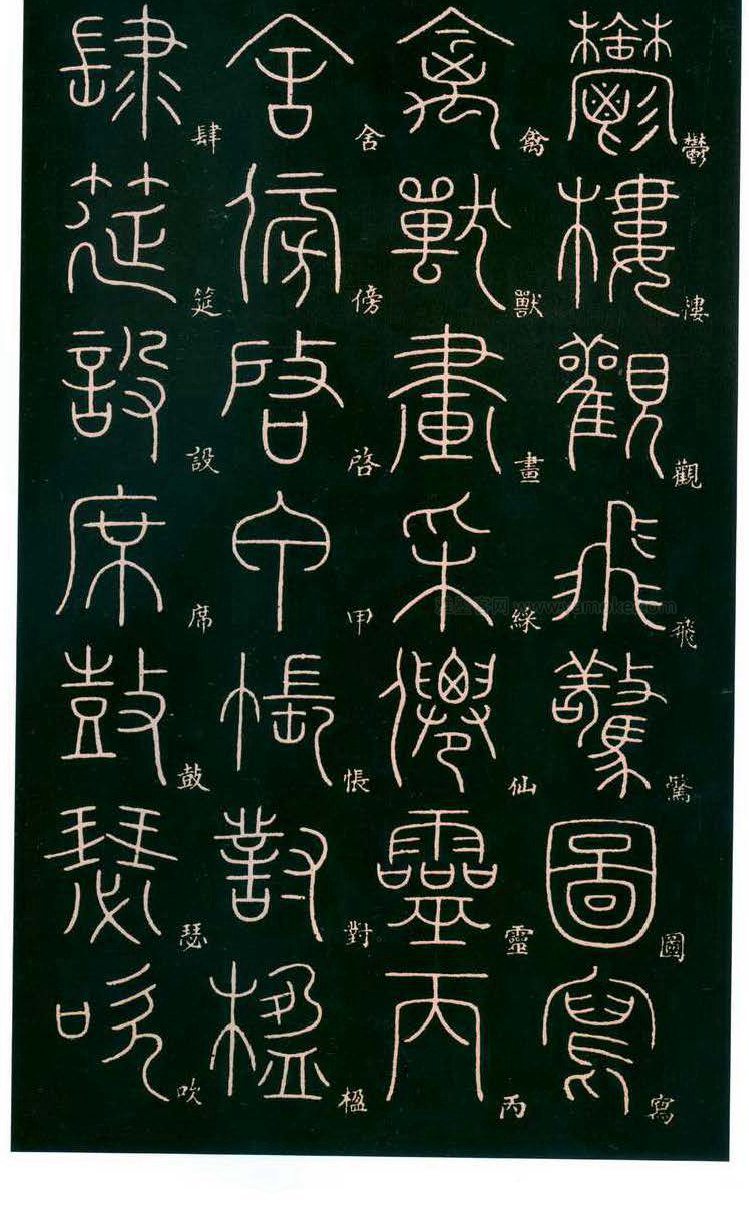 鬱樓觀飛驚圖寫
禽獸畫綵仙靈丙
舍傍啓甲帳對楹
肆筵設席鼓瑟吹
www.yamoke.com